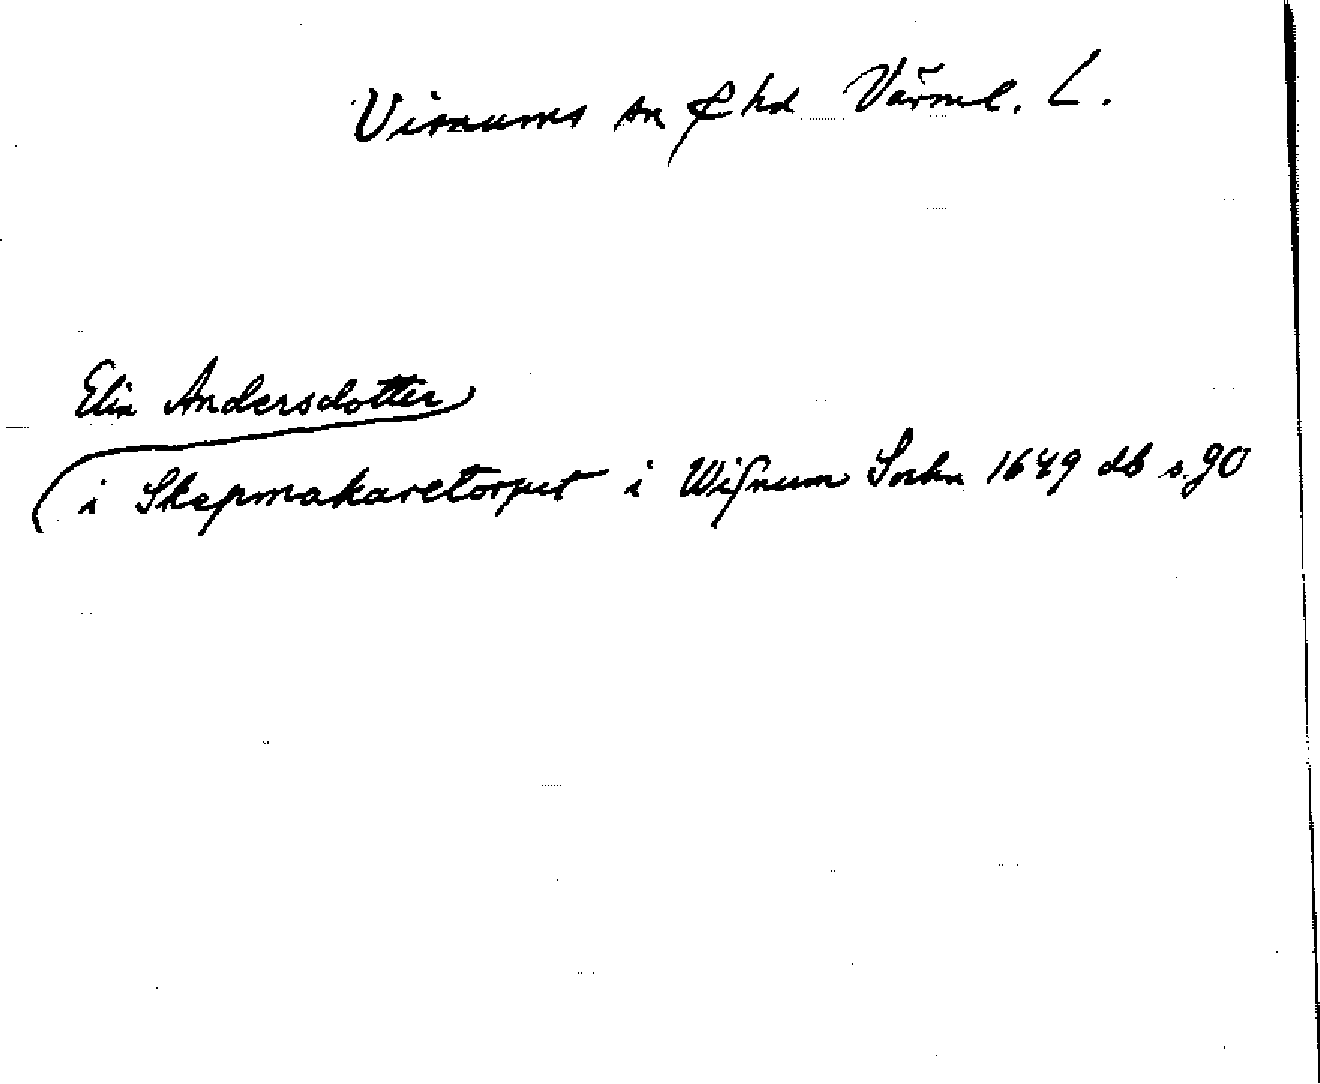 Visnums sn & hd Värml. L.
Elin Andersdotter
i Skepmakaretorpet i Wisnum Sockn 1649 db s. 90